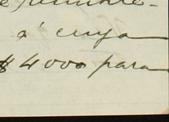 á cuya
$4000 para